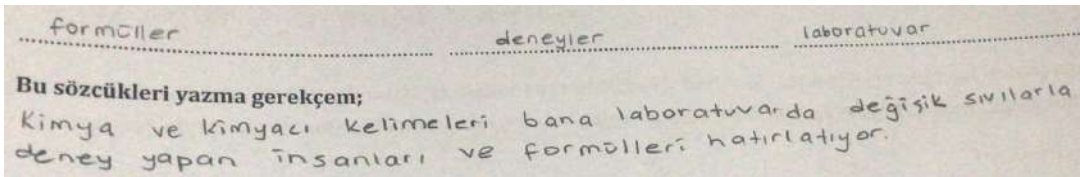 formüller deneyler laboratuvar
Bu sözcükleri yazma gerekçem;
Kimya ve kimyacı kelimeleri bana laboratuvarda değişik sıvılarla
deney yapan insanları ve formülleri hatırlatıyor.